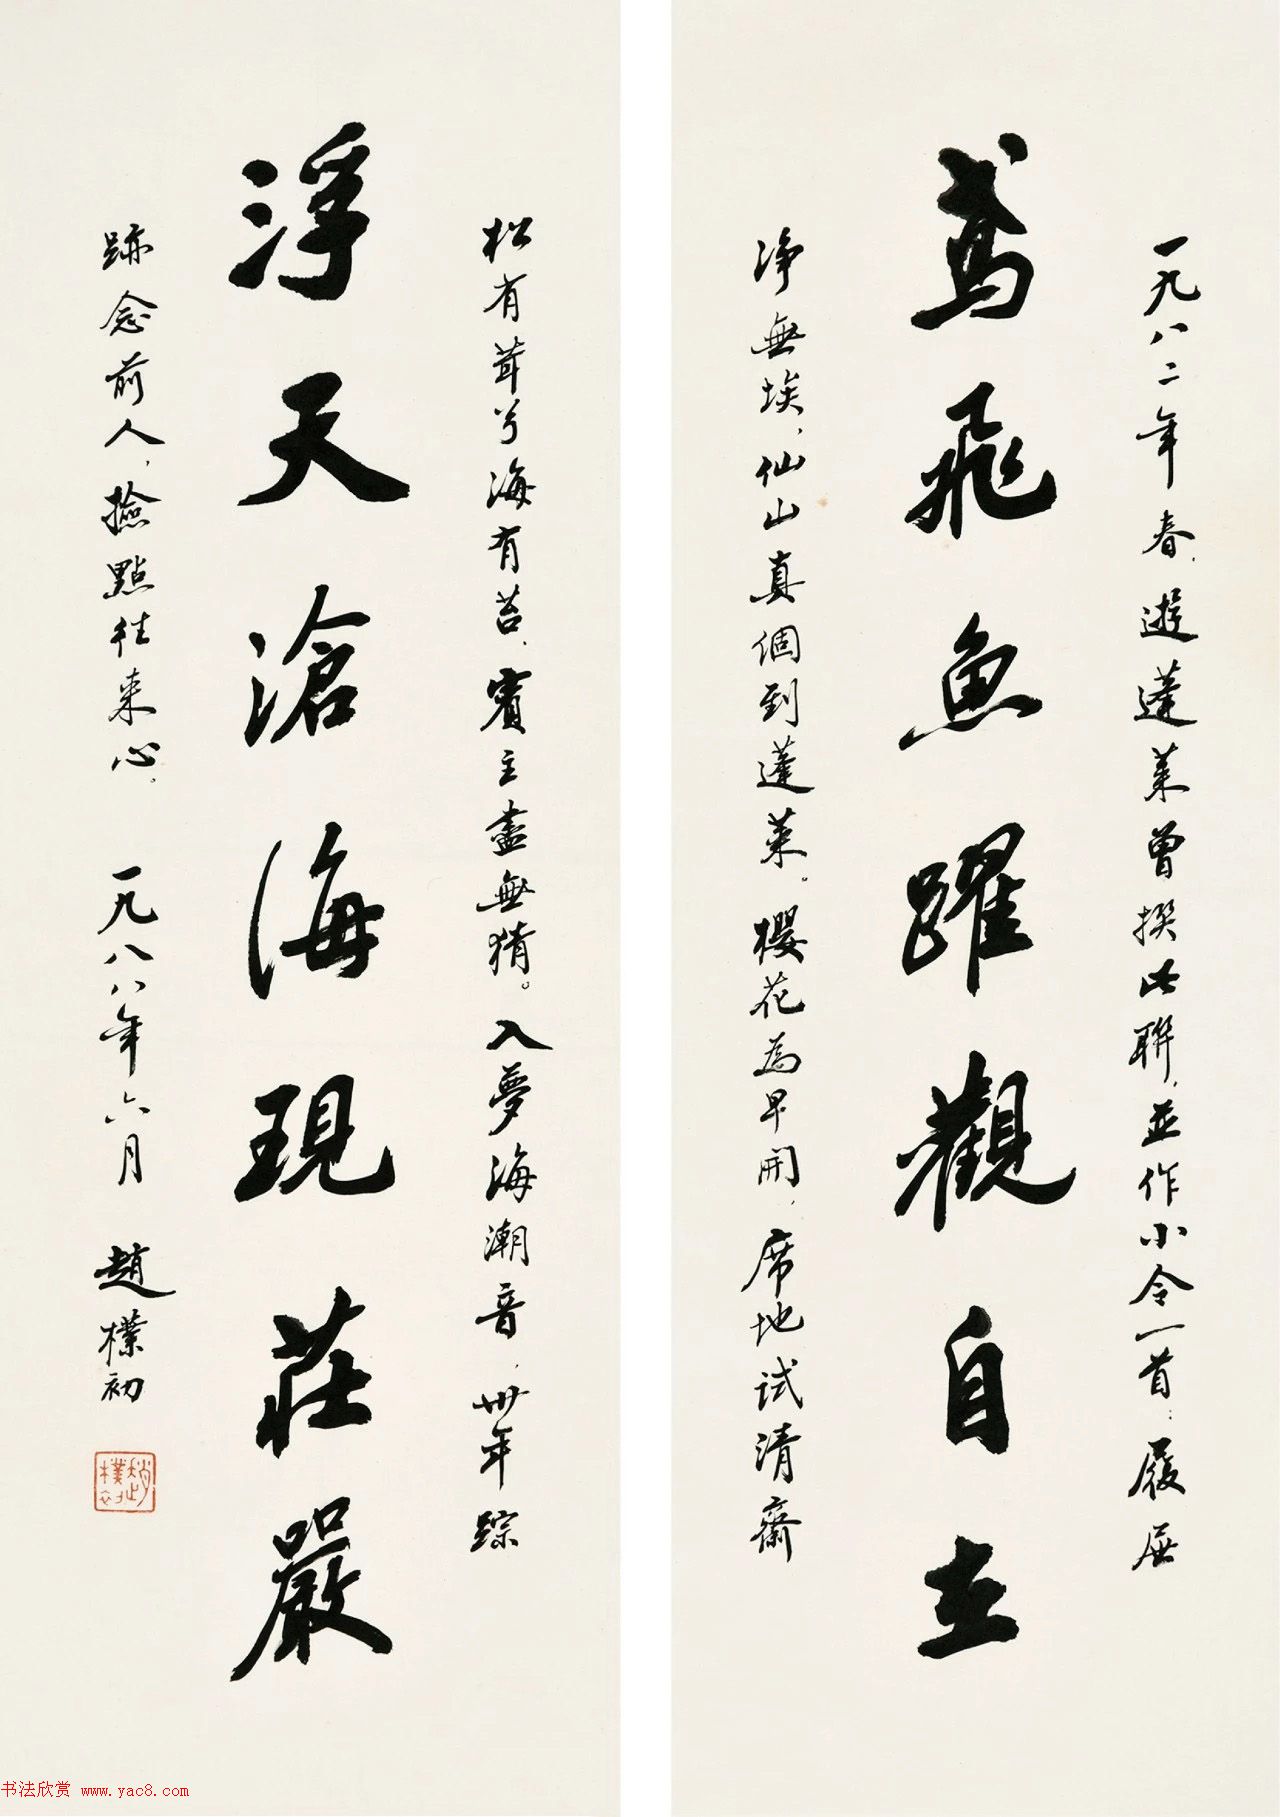 一九八二年春，遊蓬萊曾撰此聯，並作小令一首：履屐
鳶飛魚躍觀自在
净無埃，仙山真個到蓬萊。櫻花為早開，席地試清齋
松有茸兮海有苔，賓主盡無猜。入夢海潮音，卅年踪
浮天滄海現莊嚴
跡念前人，撿點往来心。一九八八年六月 趙樸初
趙樸初
书法欣赏 www.yac8.com